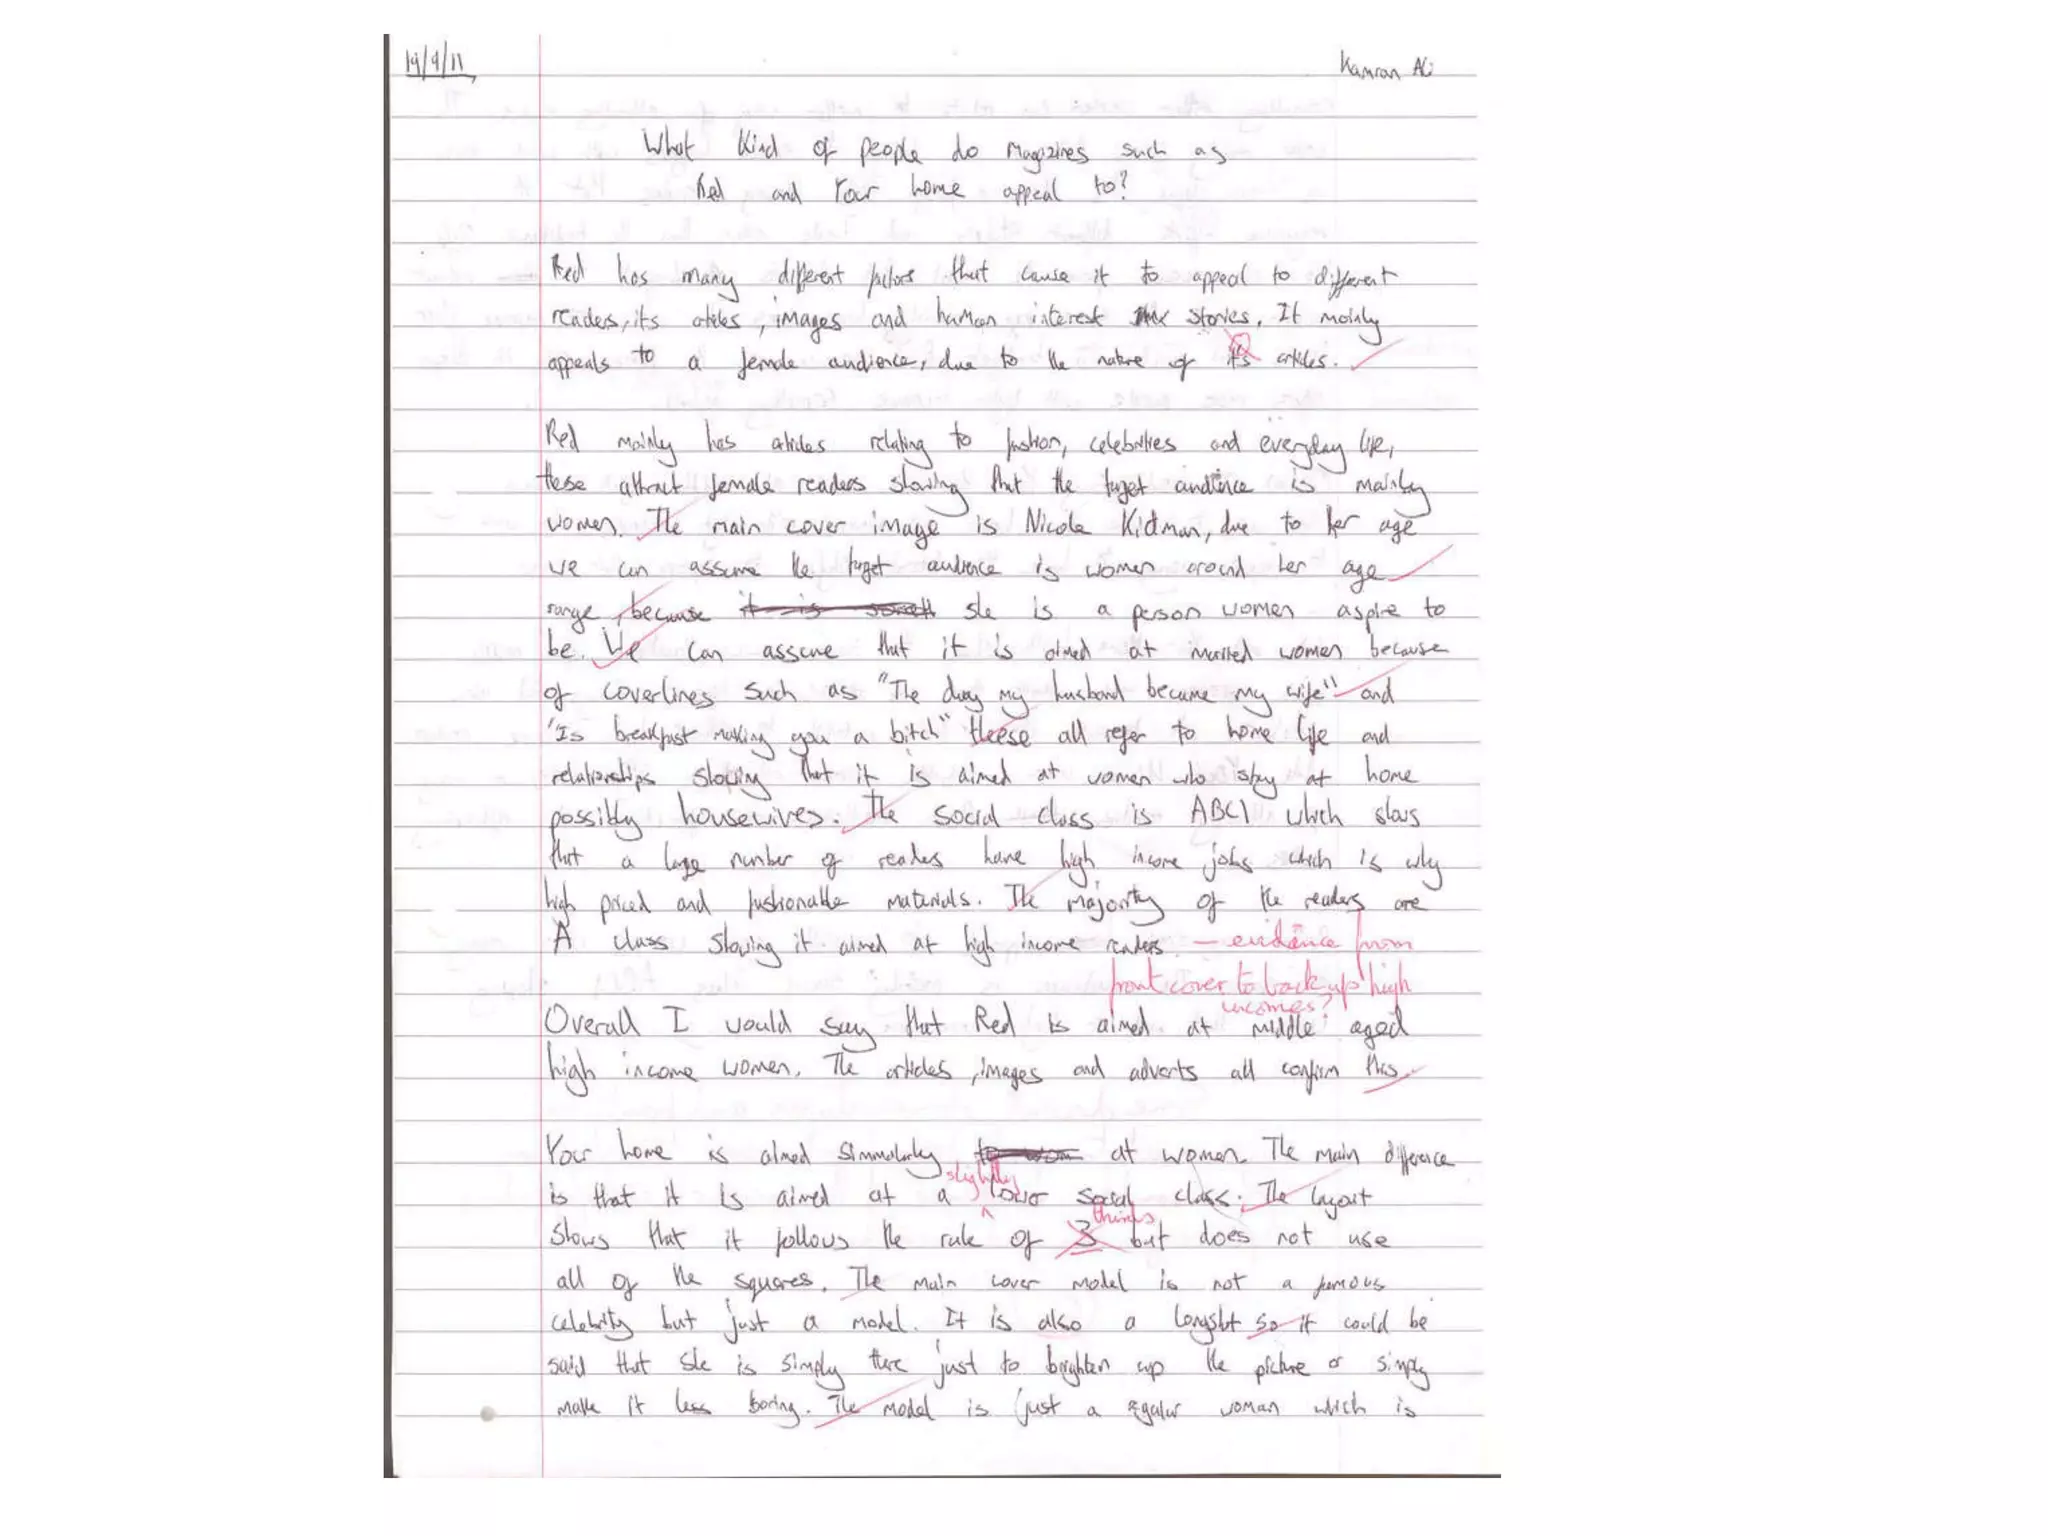 19/9/11
Kamran Ali
What Kind of people do Magizines such as
Red and Your home appeal to?
Red has many different factors that cause it to appeal to different
readers, its articles, images and human interest stories. It mainly
appeals to a female audience, due to the nature of its articles.
Red mainly has articles relating to fashion, celebrities and everyday life,
these attract female readers showing that the target audience is mainly
women. The main cover image is Nicole Kidman, due to her age
we can assume the target audience is women around her age
range, because it is she is a person women aspire to
be. We can assume that it is aimed at married women because
of coverlines such as "The day my husband became my wife" and
"Is breakfast making you a bitch" these all refer to home life and
relationships showing that it is aimed at women who stay at home
possibly housewives. The social class is ABC1 which shows
that a large number of readers have high income jobs which is why
high priced and fashionable materials. The majority of the readers are
A class showing it aimed at high income readers. - evidence from
front cover to back up high
incomes?
Overall I would say that Red is aimed at middle aged
high income women. The articles, images and adverts all confirm this.
Your home is aimed simmularly to wom at women. The main difference
slightly
is that it is aimed at a lower social class. The layout
thirds
shows that it follows the rule of 3 but does not use
all of the squares. The main cover model is not a famous
celebrity but just a model. It is also a longshot so it could be
said that she is simply there just to brighten up the picture or simply
make it less boring. The model is just a regular woman which is